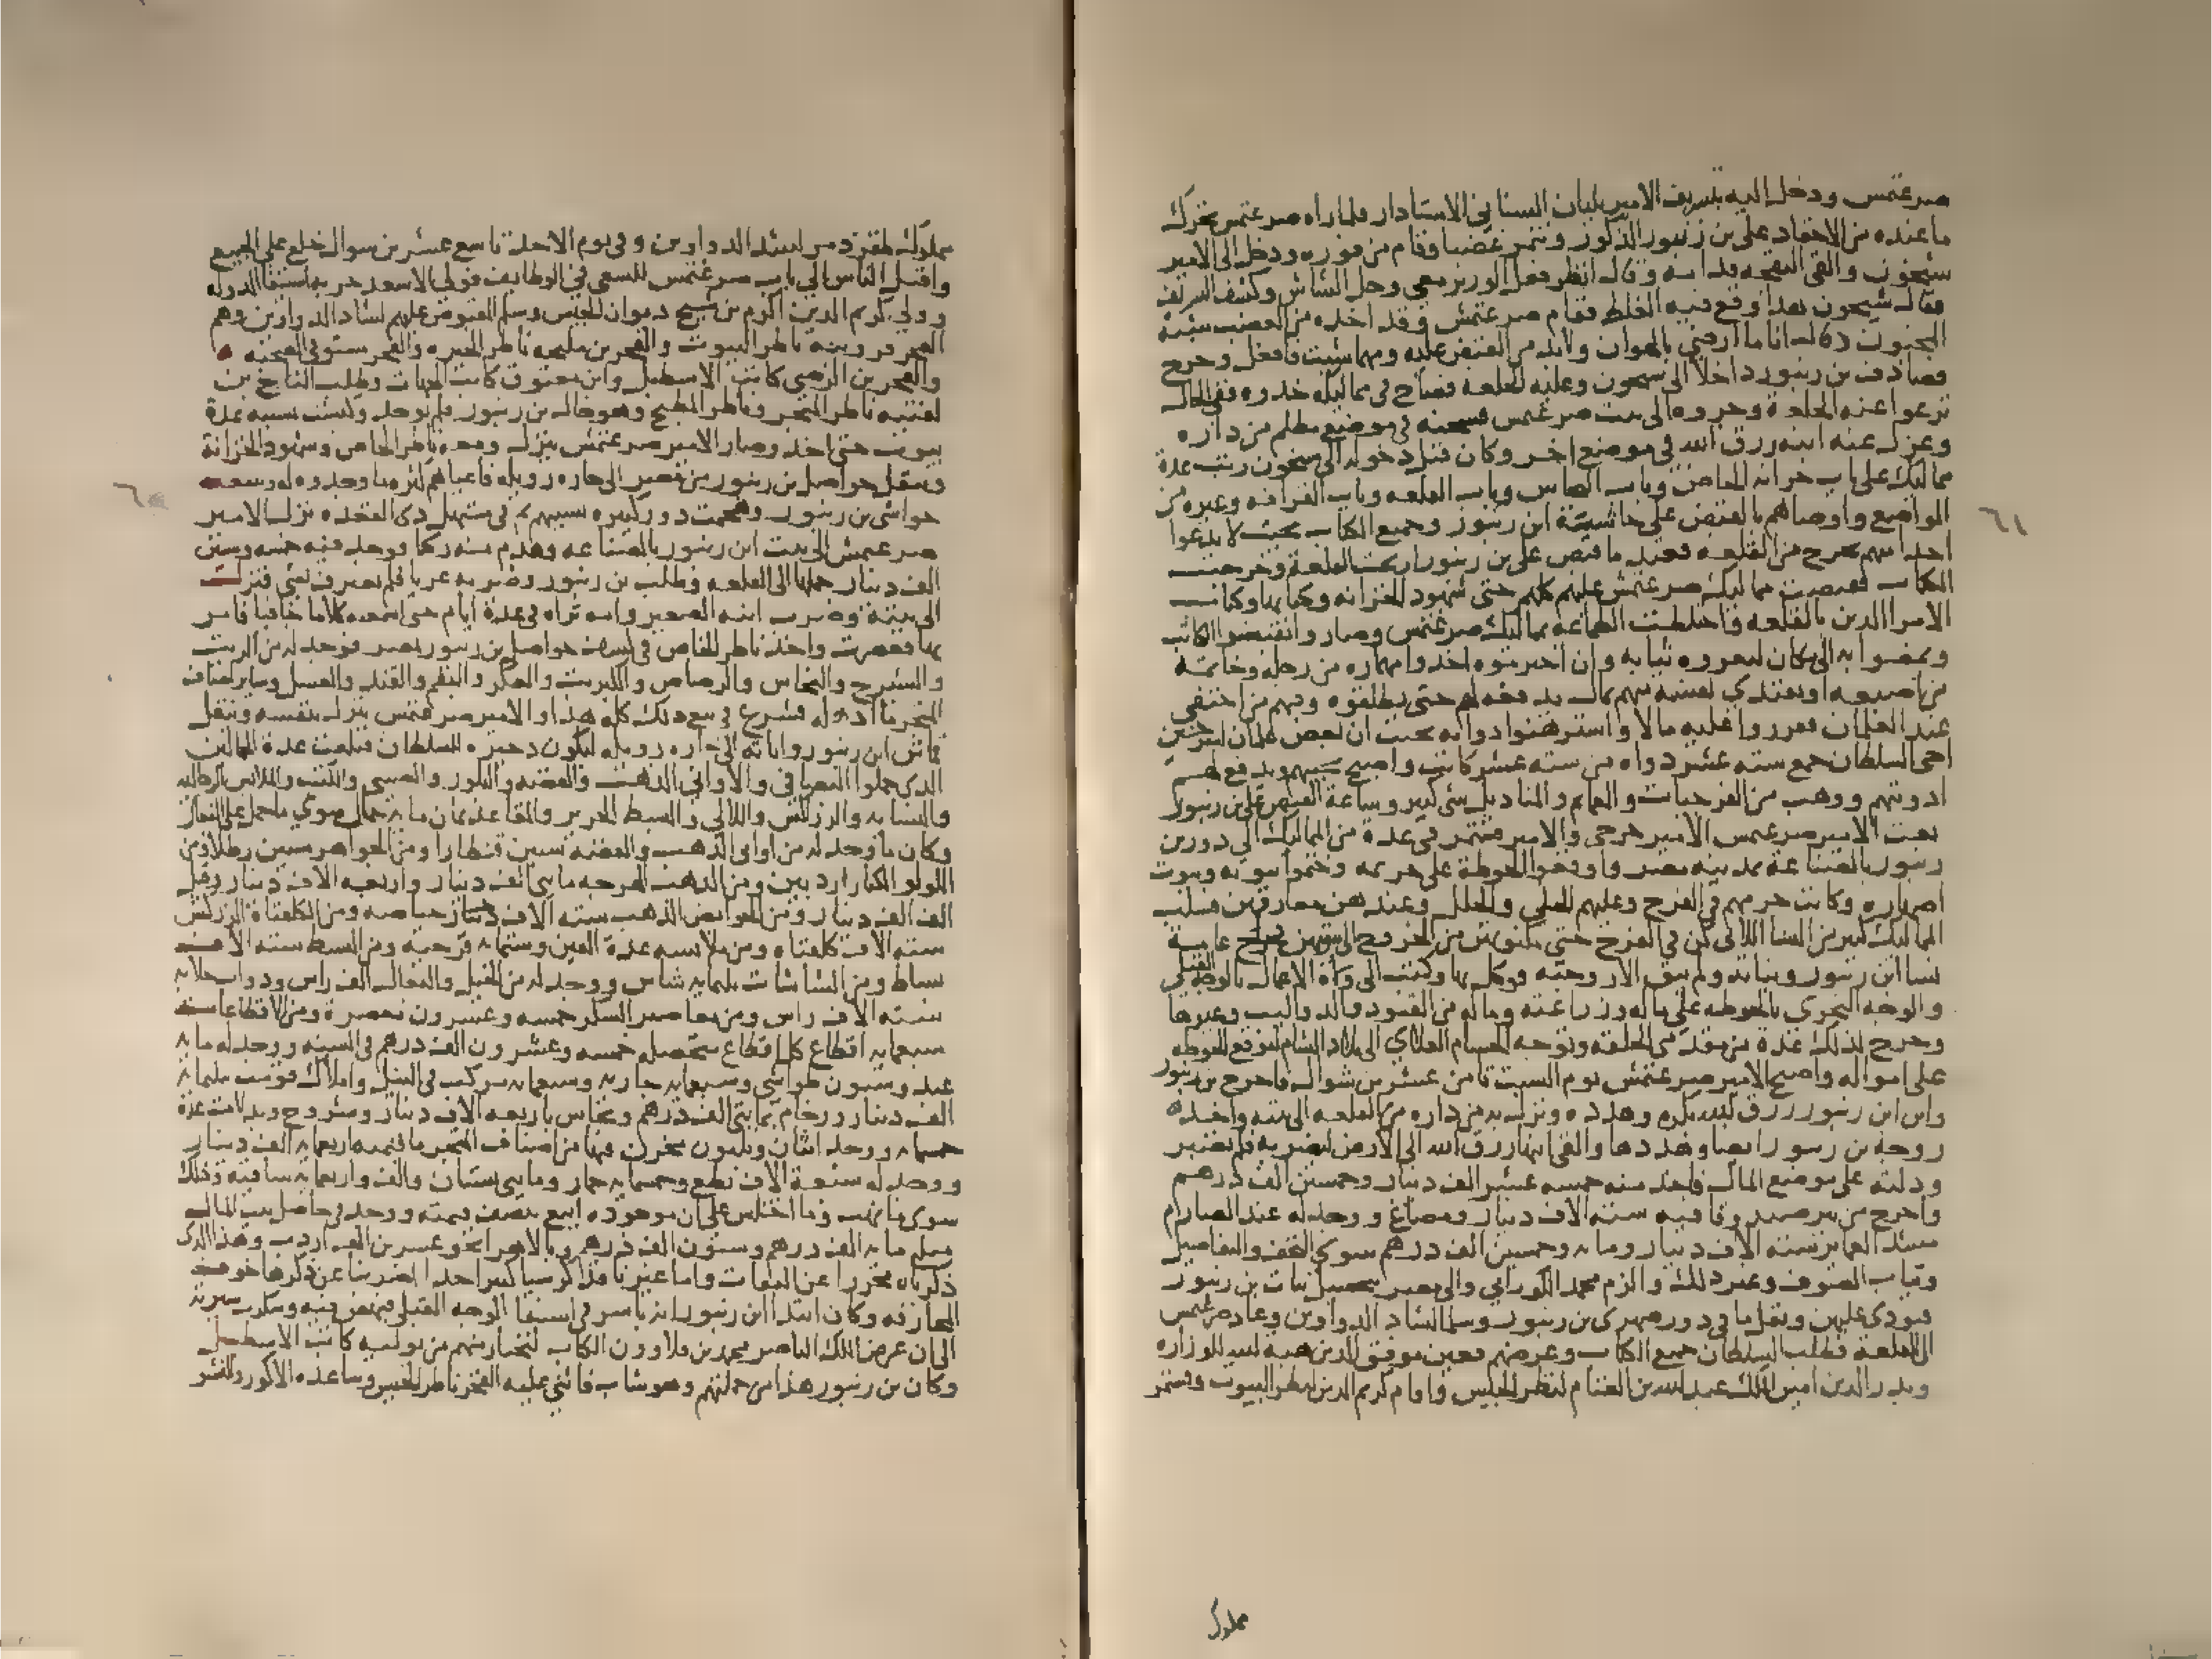 صرغتمش ودخل اليه بتشريف الامير بلبان السنانى الاستادار فلما راه صرغتمش تحرك
ما عنده من الاحقاد على بن زنبور المذكور وتنمر غضبا وقام من فوره ودخل الى الامير
شيخون والقى البقجه قدامه وقال انظر فعل الوزير معى وحل الشاش وكشف التشريف
فقال شيخون هذا وقع فيه الغلط فقام صرغتمش وقد اخذه من الغضب شبه
الجنون وقال انا ما ارضى بالهوان ولابد من القبض عليه ومهما شيت فافعل وخرج
فصادف بن زنبور داخلا الى شيخون وعليه الخلعه فصاح فى مماليكه خدوه ففى الحال
نزعوا عنه الخلعة وجروه الى بيت صرغتمش فسجنه فى موضع مظلم من داره
وعزل عنه ابنه رزق الله فى موضع اخر وكان قبل دخوله الى شيخون رتب عدة
مماليك على باب خزانه الخاص وباب النحاس وباب القلعه وباب القرافه وغيره من
المواضع واوصاهم بالقبض على حاشية ابن زنبور وجميع الكتاب بحيث لا يدعوا
احدا منهم يخرج من القلعه فعند ما قبض على بن زنبور ارتجت القلعة وخرجت
الكتاب فقبضت مماليك صرغتمش عليهم كلهم حتى شهود الخزانه وكتابها وكتاب
الامرا الدين بالقلعه واختلطت الطماعة بمماليك صرغتمش وصاروا يقبضوا الكاتب
ويمضوا به الى مكان ليعروه ثيابه وان احترموه اخدوا مهمازه من رجله وخاتمه
من اصبعه او يفتدى نفسه منهم بمال يدفعه لهم حتى يطلقوه ومنهم من اختفى
عند الغلمان فقرروا عليه مالا واسترهنوا دواته بحيث ان بعض غلمان امير حسين
اخى السلطان جمع سته عشر دواه من سته عشر كاتب واصبح يجبيهم ويدفع لهم
ادويتهم ودهب من الفرجيات والعمايم والمناديل شى كبير وساعة القبض على بن زنبور
بعث الامير صرغتمش الامير جرجى والامير قشتمر فى عدة من المماليك الى دور بن
زنبور بالصناعة بمدينه مصر واوقعوا الحوطة على حريمه وختموا بيوته وبيوت
اصهاره وكانت حرمهم فى الفرح وعليهم الحلى والحلل وعندهن معارفهن فسلب
المماليك كثير من النسا اللاتى كن فى الفرح حتى مكنوهن من الخروج الى بيوتهن فخرج عامه
نسا ابن زنبور وبناته ولم يبق الا زوجته فوكل بها وكتب الى ولاة الاعمال بالوجه القبلى
والوجه البحرى بالحوطه على ماله وزراعته وماله من القنود والدواليب وغيرها
وخرج لذلك عدة من مقدمى الحلقه وتوجه الحسام العلاى الى بلاد الشام ليوقع الحوطه
على امواله واصبح الامير صرغتمش يوم السبت ثامن عشر من شوال فاخرج بن زنبور
وابن ابن زنبور رزق الله بكره وهدده ونزل به من داره من القلعه الى بيته واخذه
زوجة بن زنبور ايضا وهددها والقى ابنها رزق الله الى الارض ليضربه فلم تصبر
ودلته على موضع المال فاخد منه خمسه عشر الف دينار وخمسين الف درهم
واخرج من بير صندوقا فيه سته الاف دينار ومصاغ ووجد له عند الصارم
مشد العماير سته الاف دينار ومايه وخمسين الف درهم سوى التحف والتفاصيل
وثياب الصوف وغير ذلك والزم محمد الكورانى والى مصر بتحصيل بنات بن زنبور
فنودى عليهن ونقل ما فى دور صهرى بن زنبور وسلما لشاد الدواوين وعاد صرغتمش
الى القلعة فطلب السلطان جميع الكتاب وعرضهم فعين موفق الدين هبة الله للوزاره
وبدر الدين امين الملك عبد الله بن الغنام لنظر الجيش واقام كريم الدين لنظر البيوت وقشتمر
مملوك
٦١
مملوك طقزدمر لشد الدواوين وفى يوم الاحد تاسع عشر من شوال خلع على الجميع
واقبل الناس الى باب صرغتمش للسعى فى الوظايف فولى الاسعد حربه استيفا الدوله
وولى كريم الدين اكرم بن شيخ ديوان الجيش وسلم المقبوض عليهم لشاد الدواوين وهم
الفخر قروينه ناظر البيوت والفخر بن مليحه ناظر الجيزه والفخر مستوفى الصحبه
والفخر بن الرضى كاتب الاسطبل وابن معتوق كاتب الجهات وطلب التاج بن
لفيته ناظر المتجر وناظر المطبخ وهو خال بن زنبور فلم يوجد وكبست بسببه عدة
بيوت حتى اخد وصار الامير صرغتمش ينزل ومعه ناظر الخاص وشهود الخزانة
وينقل حواصل بن زنبور من مصر الى حاره زويله فاعياهم كثره ما وجدوه له وتتبعت
حواشى بن زنبور وهجمت دور كثيره بسببهم ثم فى مستهل دى القعده نزل الامير
صرغتمش الى بيت ابن زنبور بالصناعه وهدم منه ركنا فوجد فيه خمسه وستين
الف دينار حملها الى القلعه وطلب بن زنبور وضربه عريا فلم يعترف بشى فنزل
الى بيته وضرب ابنه الصغير وامه تراه فى عدة ايام حتى اسمعته كلاما جافيا فامر
بها فعصرت واخد ناظر الخاص فى كشف حواصل بن زنبور بمصر فوجد له من الزيت
والشيرج والنحاس والرصاص والكبريت والعكر والبقم والقند والعسل وساير اصناف
المتجر ما ادهله فشرع فى بيع دلك كله هذا والامير صرغتمش ينزل بنفسه وينقل
قماش ابن زنبور واثاثه الى حاره زويله ليكون دخيره للسلطان فبلغت عدة الحمالين
الدى حملوا النصافى والاوانى الدهب والفضه والبلور والصينى والكتب والملابس الرجاليه
والنسايه والزركش واللالى والبسط الحرير والمقاعد ثمان مايه حمال سوى ما حمل على البغال
وكان ما وجد له من اوانى الذهب والفضه ستين قنطارا ومن الجواهر ستين رطلا ومن
اللولو الكبار اردبين ومن الدهب الهرجه مايتى الف دينار واربعه الاف دينار وقيل
الف الف دينار ومن الحوايص الذهب سته الاف حياصه ومن الكلفتاه الزركش
سته الاف كلفتاه ومن ملابسه عدة الفين وستمايه فرجيه ومن البسط سته الاف
بساط ومن الشاشات ثلثمايه شاش ووجد له من الخيل والبغال الف راس ودواب حلابه
سته الاف راس ومن معاصر السكر خمسه وعشرون معصرة ومن الاقطاعات
سبعمايه اقطاع كل اقطاع متحصله خمسه وعشرون الف درهم فى السنه ووجد له مايه
عبد وستون طواشى وسبعمايه جاريه وسبعمايه مركب فى النيل واملاك قومت بثلثمايه
الف دينار ورخام بمايتى الف درهم ونحاس باربعه الاف دينار وسروج وبدلات عدة
خمسمايه ووجد اثنان وثلثون مخزن فيها من اصناف المتجر ما قيمته اربعمايه الف دينار
ووجد له سبعة الاف نطع وخمسمايه حمار ومايتى بستان والف واربعمايه ساقيه وذلك
سوى ما نهب وما اختلس على ان موجوده ابيع بنصف قيمته ووجد فى حاصل بيت المال
مبلغ مايه الف درهم وستون الف درهم وبالاهرا نحو عشرين الف اردب وهذا الدى
ذكرناه محررا عن الثقات واما غيرنا فذكر شيا كثير احدا اضربنا عن ذكره خوف
المجازفه وكان ابتدا ابن زنبور انه باشر فى استيفا الوجه القبلى فنهض فيه وشكرت سيرته
الى ان عرض الملك الناصر محمد بن قلاوون الكتاب ليختار منهم من يوليه كاتب الاسطبل
وكان بن زنبور هذا من جملتهم وهو شاب فاثنى عليه الفخر ناظر الجيش وساعده الاكوز والنشو
٦٠